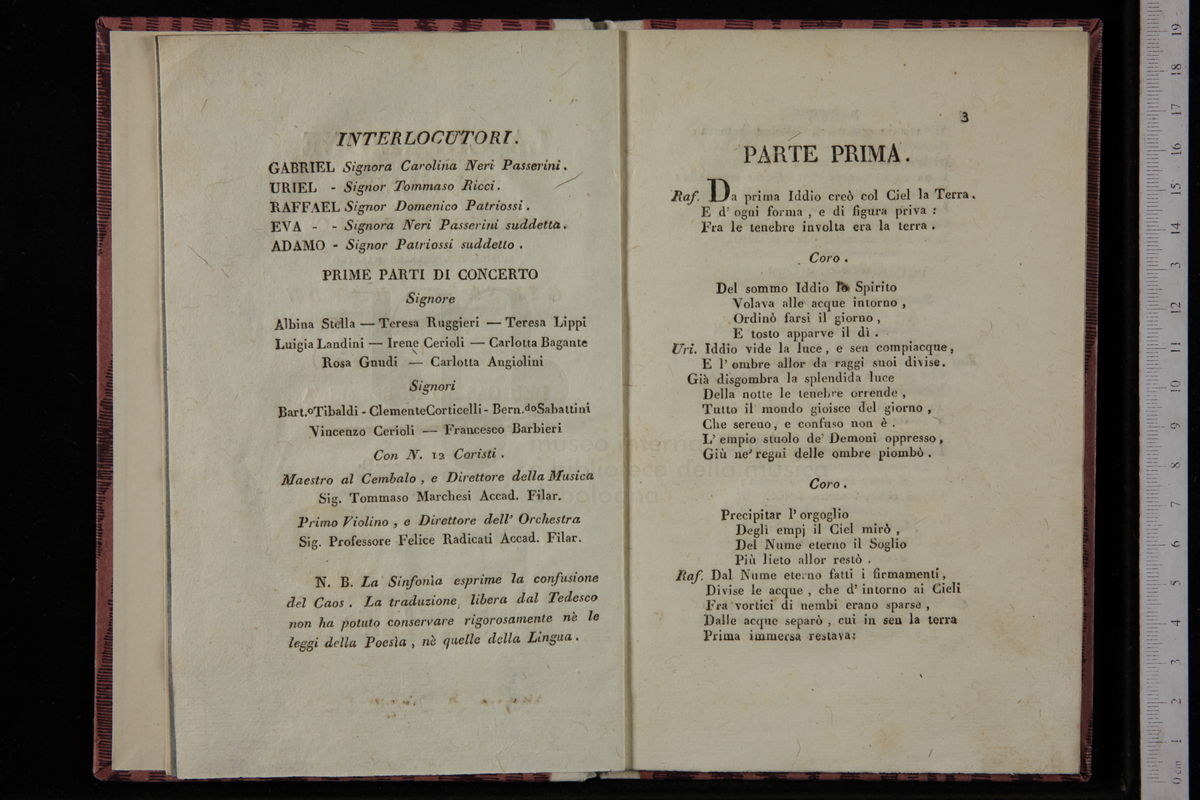 INTERLOCUTORI.
GABRIEL Signora Carolina Neri Passerini.
URIEL - Signor Tommaso Ricci.
RAFFAEL Signor Domenico Patriossi.
EVA - - Signora Neri Passerini suddetta.
ADAMO - Signor Patriossi suddetto.
PRIME PARTI DI CONCERTO
Signore
Albina Stella — Teresa Ruggieri — Teresa Lippi
Luigia Landini — Irene Cerioli — Carlotta Bagante
Rosa Gnudi — Carlotta Angiolini
Signori
Bart.º Tibaldi - Clemente Corticelli - Bern.do Sabattini
Vincenzo Cerioli — Francesco Barbieri
Con N. 12 Coristi.
Maestro al Cembalo, e Direttore della Musica
Sig. Tommaso Marchesi Accad. Filar.
Primo Violino, e Direttore dell' Orchestra
Sig. Professore Felice Radicati Accad. Filar.
N. B. La Sinfonìa esprime la confusione
del Caos. La traduzione libera dal Tedesco
non ha potuto conservare rigorosamente nè le
leggi della Poesìa, nè quelle della Lingua.
3
PARTE PRIMA.
Raf. Da prima Iddio creò col Ciel la Terra.
E d' ogni forma, e di figura priva:
Fra le tenebre involta era la terra.
Coro.
Del sommo Iddio lo Spirito
Volava alle acque intorno,
Ordinò farsi il giorno,
E tosto apparve il dì.
Uri. Iddio vide la luce, e sen compiacque,
E l' ombre allor da raggi suoi divise.
Già disgombra la splendida luce
Della notte le tenebre orrende,
Tutto il mondo gioisce del giorno,
Che sereno, e confuso non è.
L' empio stuolo de' Demoni oppresso,
Giù ne' regni delle ombre piombò.
Coro.
Precipitar l' orgoglio
Degli empj il Ciel mirò,
Del Nume eterno il Soglio
Più lieto allor restò.
Raf. Dal Nume eterno fatti i firmamenti,
Divise le acque, che d' intorno ai Cieli
Fra vortici di nembi erano sparse,
Dalle acque separò, cui in sen la terra
Prima immersa restava:
museo interna
teca della musica
bologna
0 cm 1 2 3 4 5 6 7 8 9 10 11 12 13 14 15 16 17 18 19